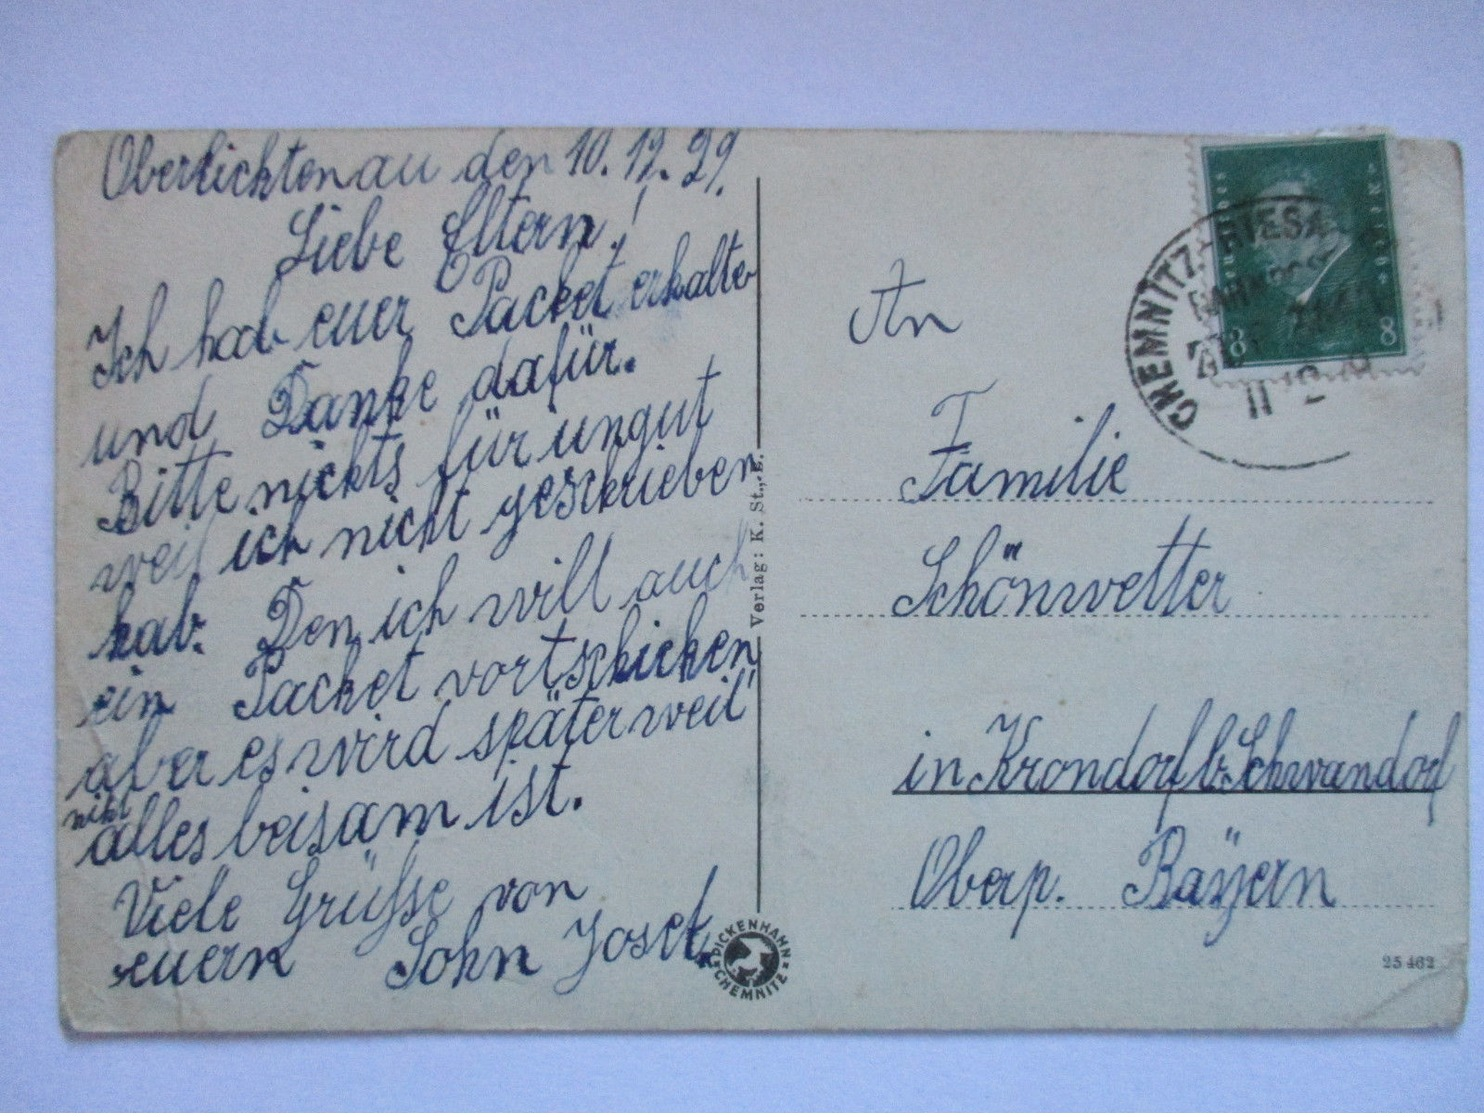 Oberlichtenau den 10. 12. 29.
Liebe Eltern!
Ich hab euer Packet erhalte
und Danke dafür.
Bitte nichts für ungut
weil ich nicht geschrieben
hab. Den ich will auch
ein Packet vortschicken
aber es wird später weil
nikt
alles beisam ist.
Viele Grüsse von
euern Sohn Josef.
Verlag: K. St., L.
DICKENHAHN
CHEMNITZ
CHEMNITZ-RIESA
8 8
An
Familie
Schönwetter
in Krondorf b. Schwandorf
Oberp. Bayern
25 462